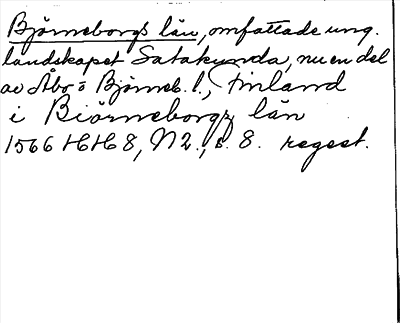 Björneborgs län, omfattade ung.
landskapet Satakunda, nu en del
av Åbo o Björneb. l., Finland
i Biörneborgz län
1566 HH 8, N2., s. 8. regest.